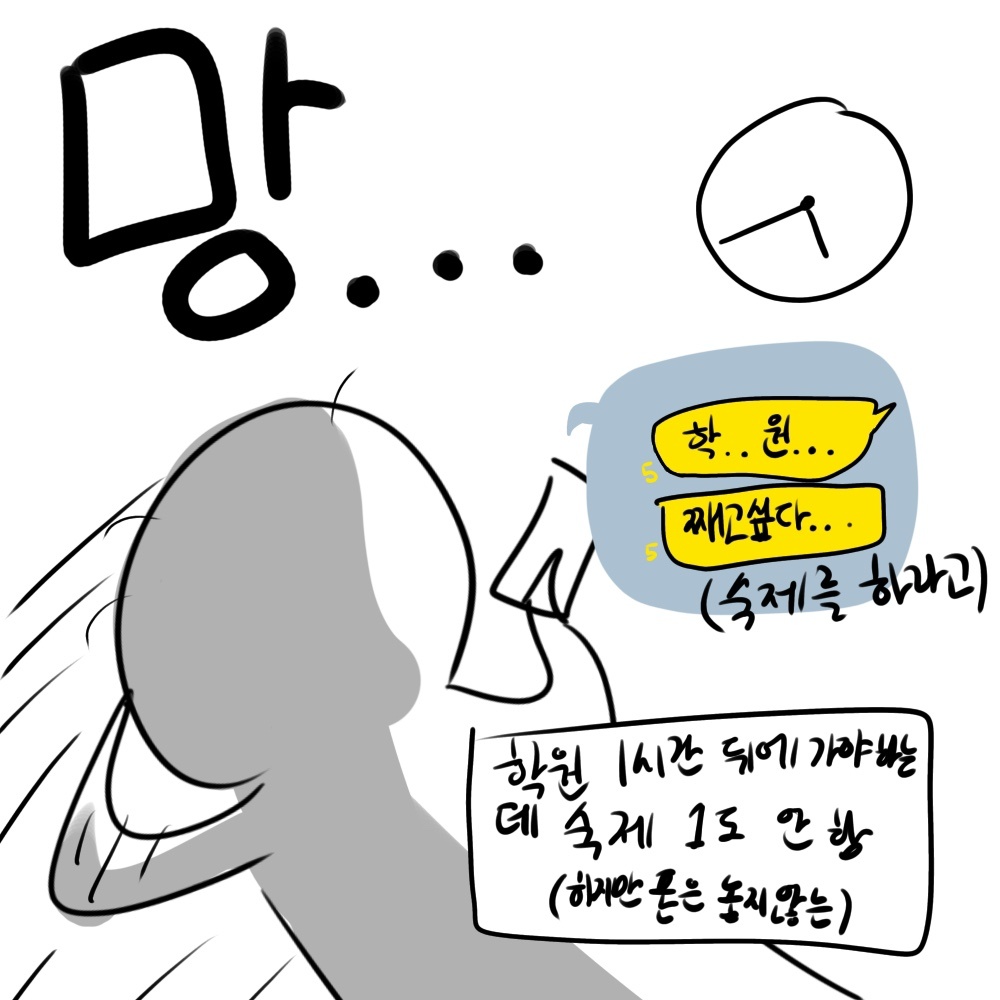 망...
학..원...
5
째고싶다...
5
(숙제를 하라고)
학원 1시간 뒤에 가야하는
데 숙제 1도 안 함
(하지만 폰은 놓지않는)